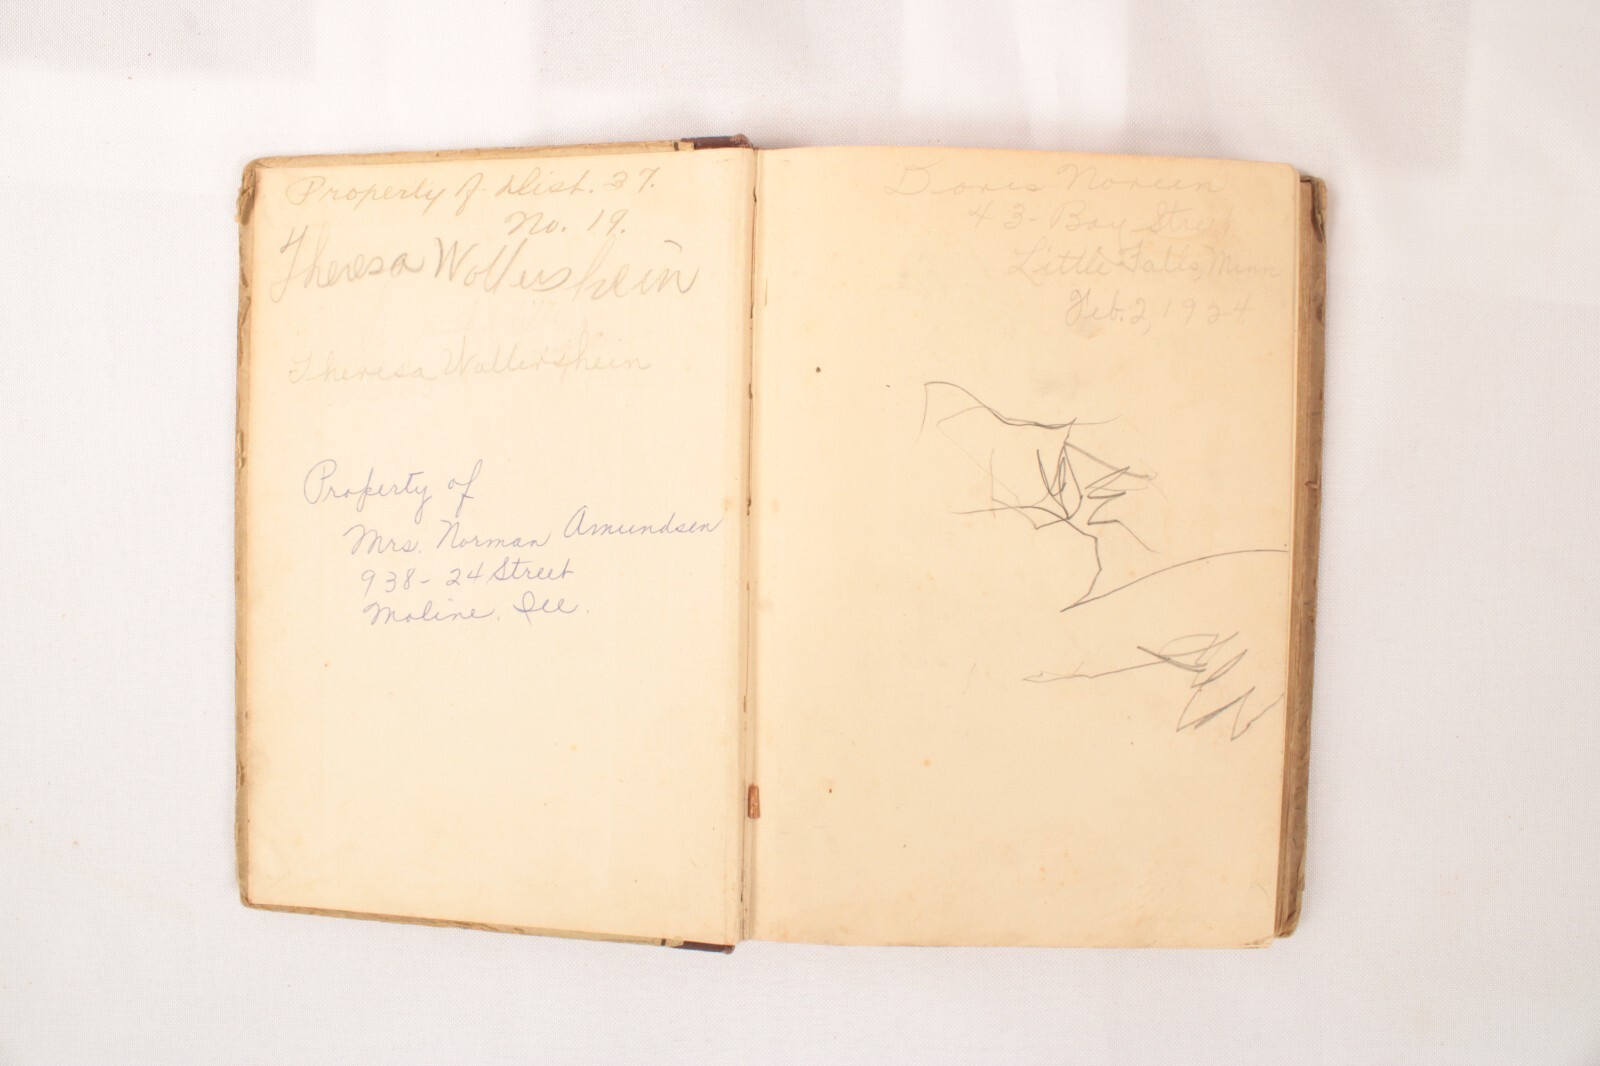 Property of Dist. 37.
No. 19.
Theresa Wollershein
Theresa Wollershein
Property of
Mrs. Norman Amundsen
938- 24 Street
Moline, Ill.
Doris Noreen
43- Bay Street
Little Falls, Minn
Feb. 2, 1924